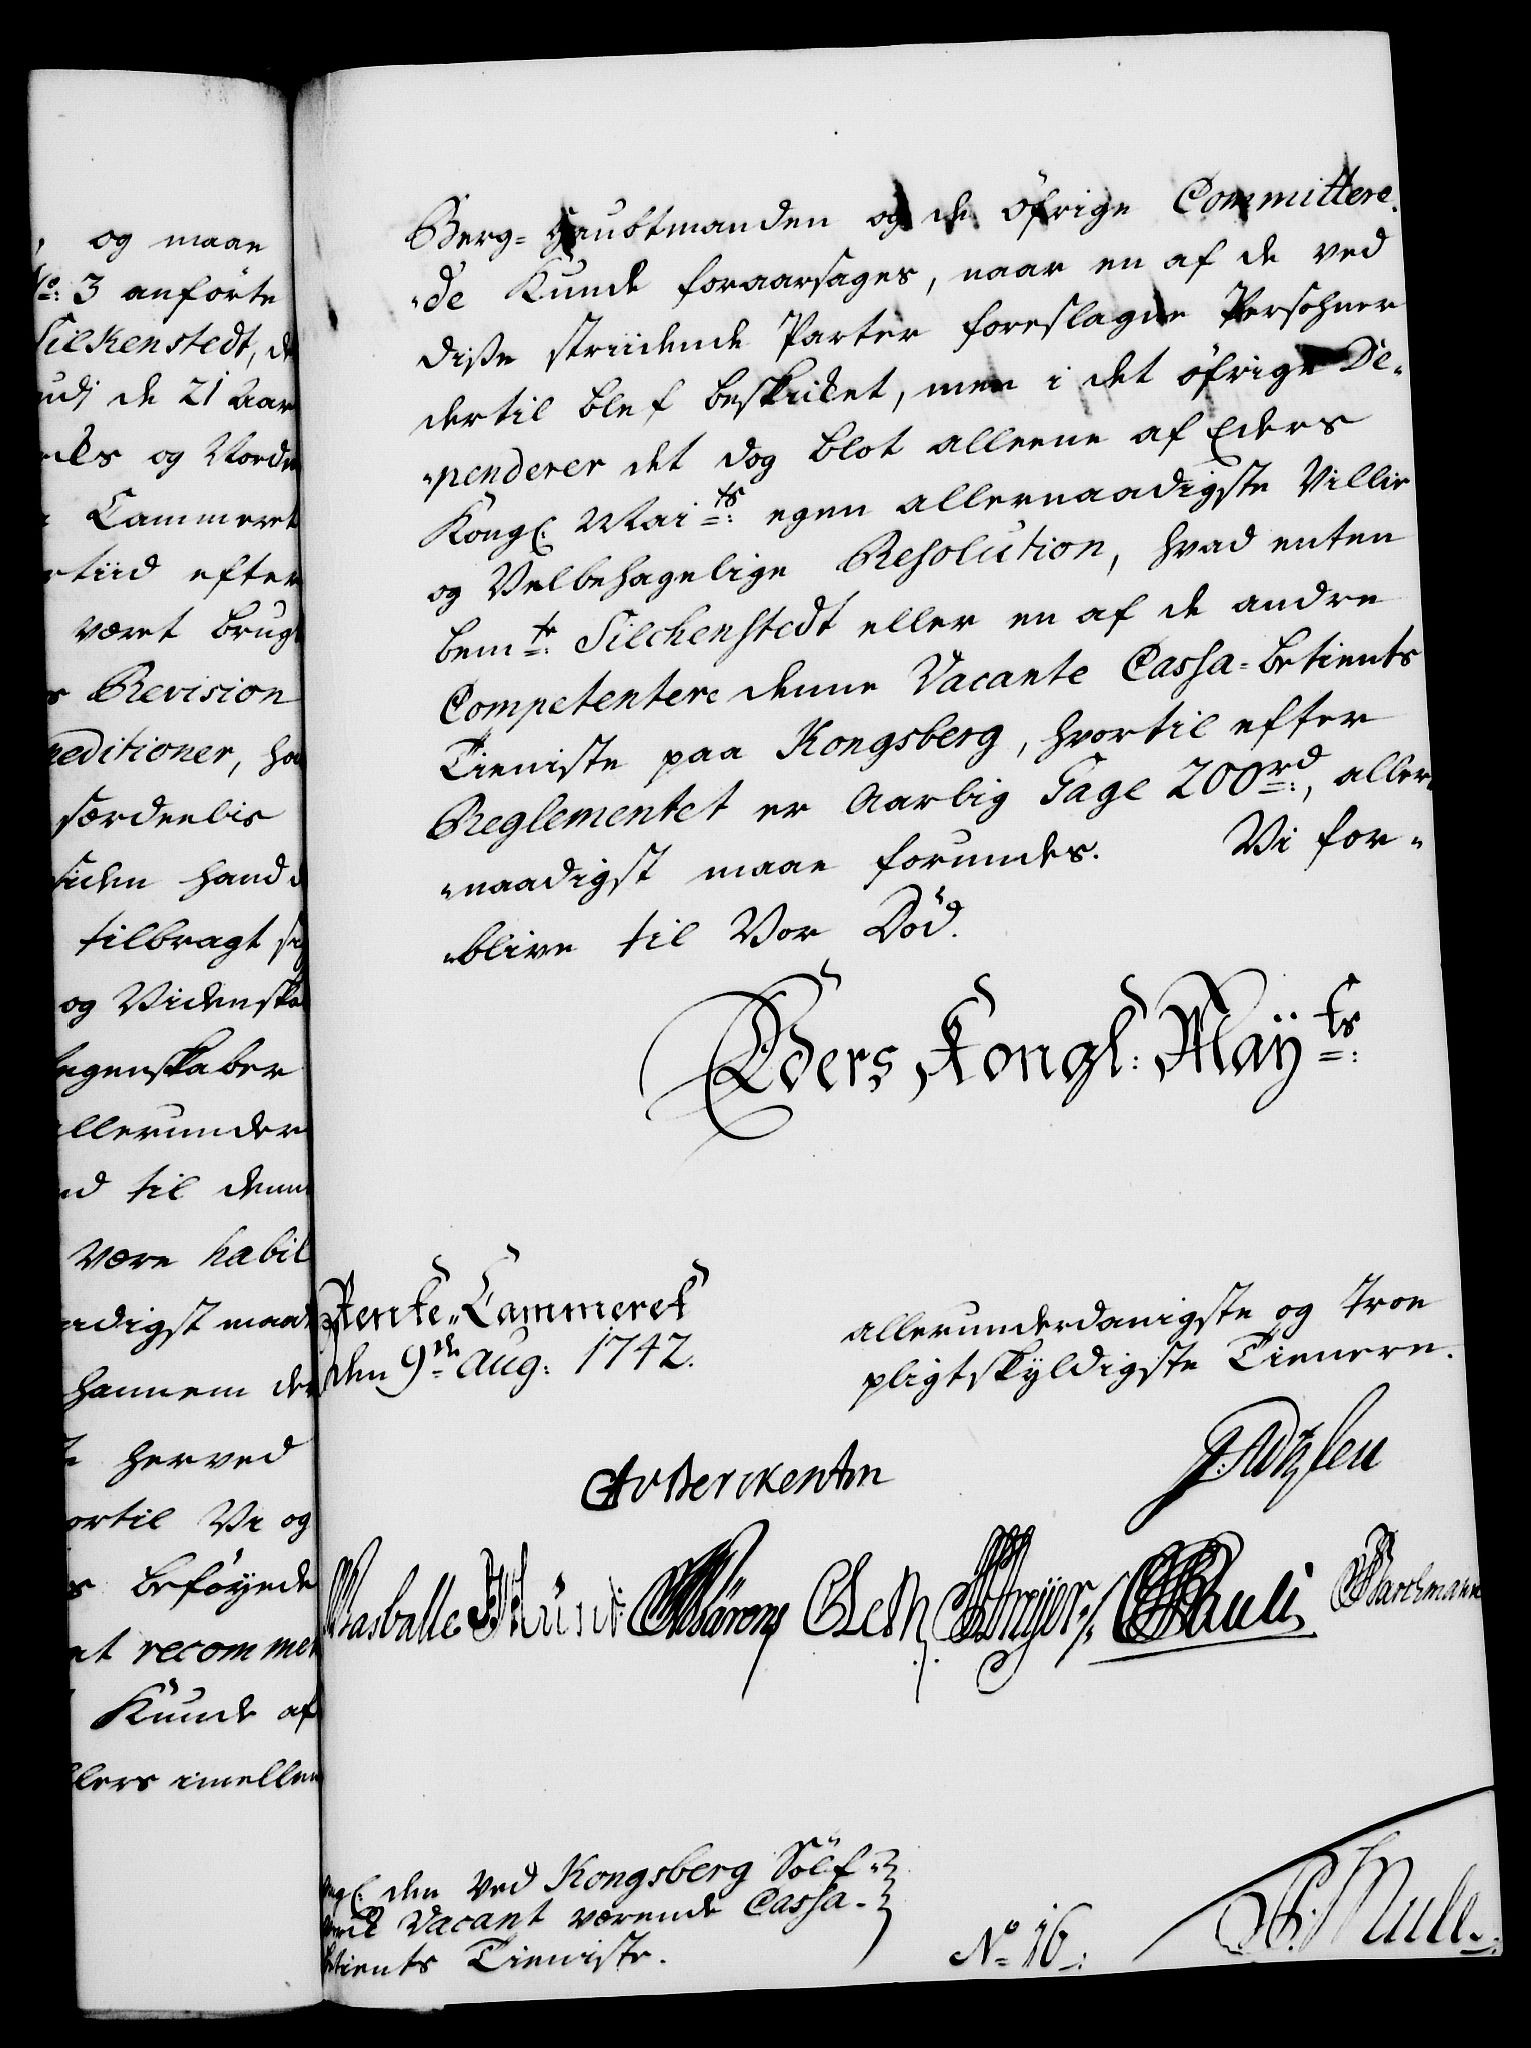 og maae
No: 3 anförte
Silkenstedt, de
de 21 Aar
og Vorde
Cammeret
efter
været brug
Revision
særdeelis
siden hand
tilbragt sig
og Videnska
egenskaber
allerunder
til denne
være habil
naadigst maat
hannem der
herved
hvortil Vi og
beföyede
at recommen
Kunde af
ellers imellem
Berg-Haubtmanden og de öfrige Committere„
„de Kunde foraarsages, naar en af de ved
diße striidende Parter foreslagne Persohner
dertil blef beskicket, men i det öfrige De„
„penderer det dog blot alleene af Eders
Kongl: Mai:ts egen allernaadigste Villie
og Velbehagelige Resolution, hvad enten
bem:te Silchenstedt eller en af de andre
Competentere denne Vacante Cassa-betients
Tieniste paa Kongsberg, hvortil efter
Reglementet er Aarlig Gage 200rd:, aller„
„naadigst maae forundes. Vi for„
„blive til Vor Död.
Eders Kongl: Maÿ:ts
Rente„Cammeret
den 9de Aug: 1742.
allerunderdanigste og troe
pligtskyldigste Tienere.
CAvBerckentin
Rasballe
Severin
Schreyer
Pauli
Marchmann
den ved Kongsberg Sölf„
Vacant værende Cassa-
betients Tieniste.
No 16: